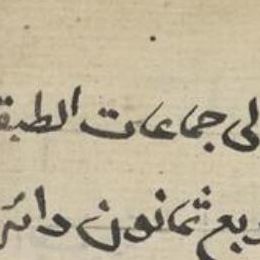 لى جماعات الطبقـ
ـربع ثمانون دائر